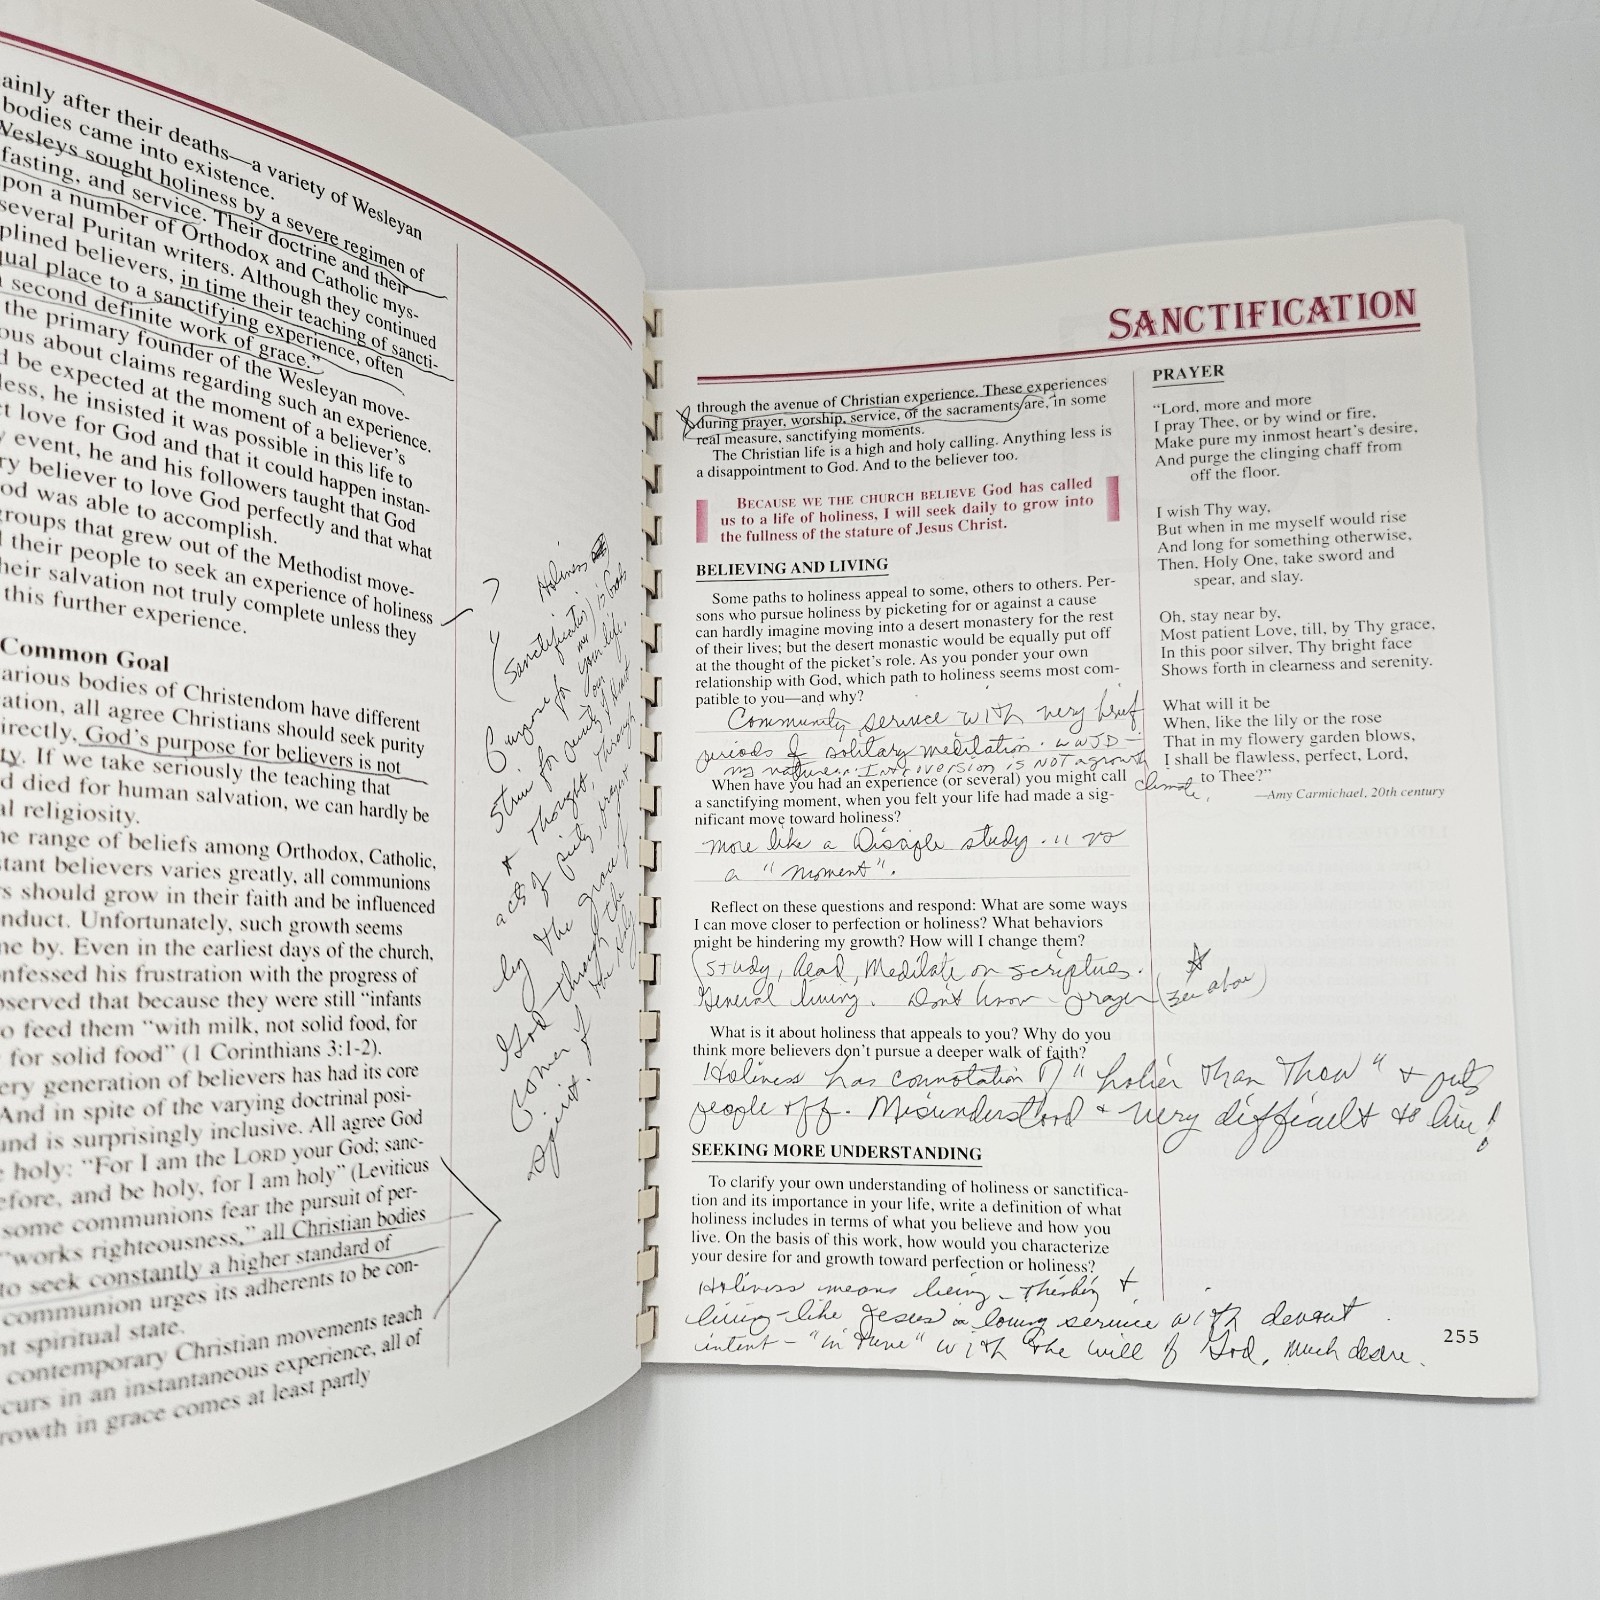 ainly after their deaths—a variety of Wesleyan
bodies came into existence.
Wesleys sought holiness by a severe regimen of
fasting, and service. Their doctrine and their
pon a number of Orthodox and Catholic mys-
several Puritan writers. Although they continued
plined believers, in time their teaching of sancti-
qual place to a sanctifying experience, often
second definite work of grace."
the primary founder of the Wesleyan move-
ous about claims regarding such an experience.
d be expected at the moment of a believer's
less, he insisted it was possible in this life to
ct love for God and that it could happen instan-
y event, he and his followers taught that God
ry believer to love God perfectly and that what
od was able to accomplish.
groups that grew out of the Methodist move-
their people to seek an experience of holiness
heir salvation not truly complete unless they
this further experience.
Common Goal
arious bodies of Christendom have different
ation, all agree Christians should seek purity
irectly, God's purpose for believers is not
ty. If we take seriously the teaching that
d died for human salvation, we can hardly be
al religiosity.
he range of beliefs among Orthodox, Catholic,
stant believers varies greatly, all communions
s should grow in their faith and be influenced
nduct. Unfortunately, such growth seems
ne by. Even in the earliest days of the church,
nfessed his frustration with the progress of
bserved that because they were still "infants
o feed them "with milk, not solid food, for
for solid food" (1 Corinthians 3:1-2).
ery generation of believers has had its core
And in spite of the varying doctrinal posi-
und is surprisingly inclusive. All agree God
e holy: "For I am the LORD your God; sanc-
efore, and be holy, for I am holy" (Leviticus
some communions fear the pursuit of per-
"works righteousness," all Christian bodies
to seek constantly a higher standard of
communion urges its adherents to be con-
nt spiritual state.
contemporary Christian movements teach
curs in an instantaneous experience, all of
rowth in grace comes at least partly
Holiness
(Sanctification) is God's
purpose for your life.
Strive for purity of heart
+ thought, through
acts of piety, prayer
by the grace of
God through the
power of the Holy
Spirit.
SANCTIFICATION
through the avenue of Christian experience. These experiences
during prayer, worship, service, or the sacraments are, in some
real measure, sanctifying moments.
The Christian life is a high and holy calling. Anything less is
a disappointment to God. And to the believer too.
BECAUSE WE THE CHURCH BELIEVE God has called
us to a life of holiness, I will seek daily to grow into
the fullness of the stature of Jesus Christ.
BELIEVING AND LIVING
Some paths to holiness appeal to some, others to others. Per-
sons who pursue holiness by picketing for or against a cause
can hardly imagine moving into a desert monastery for the rest
of their lives; but the desert monastic would be equally put off
at the thought of the picket's role. As you ponder your own
relationship with God, which path to holiness seems most com-
patible to you—and why?
Community service with very brief
periods of solitary meditation. WWJD -
my nature. Introversion is NOT a growth
climate.
When have you had an experience (or several) you might call
a sanctifying moment, when you felt your life had made a sig-
nificant move toward holiness?
more like a Disciple study. vs
a "moment".
Reflect on these questions and respond: What are some ways
I can move closer to perfection or holiness? What behaviors
might be hindering my growth? How will I change them?
(Study, Read, Meditate on scriptures.
General living. Don't know - prayer (see above)
What is it about holiness that appeals to you? Why do you
think more believers don't pursue a deeper walk of faith?
Holiness has connotation of "holier than Thow" + puts
people off. Misunderstood + very difficult to live!
SEEKING MORE UNDERSTANDING
To clarify your own understanding of holiness or sanctifica-
tion and its importance in your life, write a definition of what
holiness includes in terms of what you believe and how you
live. On the basis of this work, how would you characterize
your desire for and growth toward perfection or holiness?
Holiness means being - thinking +
living - like Jesus in loving service with devout
intent - "in tune" with the will of God. Much desire.
PRAYER
"Lord, more and more
I pray Thee, or by wind or fire,
Make pure my inmost heart's desire,
And purge the clinging chaff from
off the floor.
I wish Thy way.
But when in me myself would rise
And long for something otherwise,
Then, Holy One, take sword and
spear, and slay.
Oh, stay near by,
Most patient Love, till, by Thy grace,
In this poor silver, Thy bright face
Shows forth in clearness and serenity.
What will it be
When, like the lily or the rose
That in my flowery garden blows,
I shall be flawless, perfect, Lord,
to Thee?"
—Amy Carmichael, 20th century
255